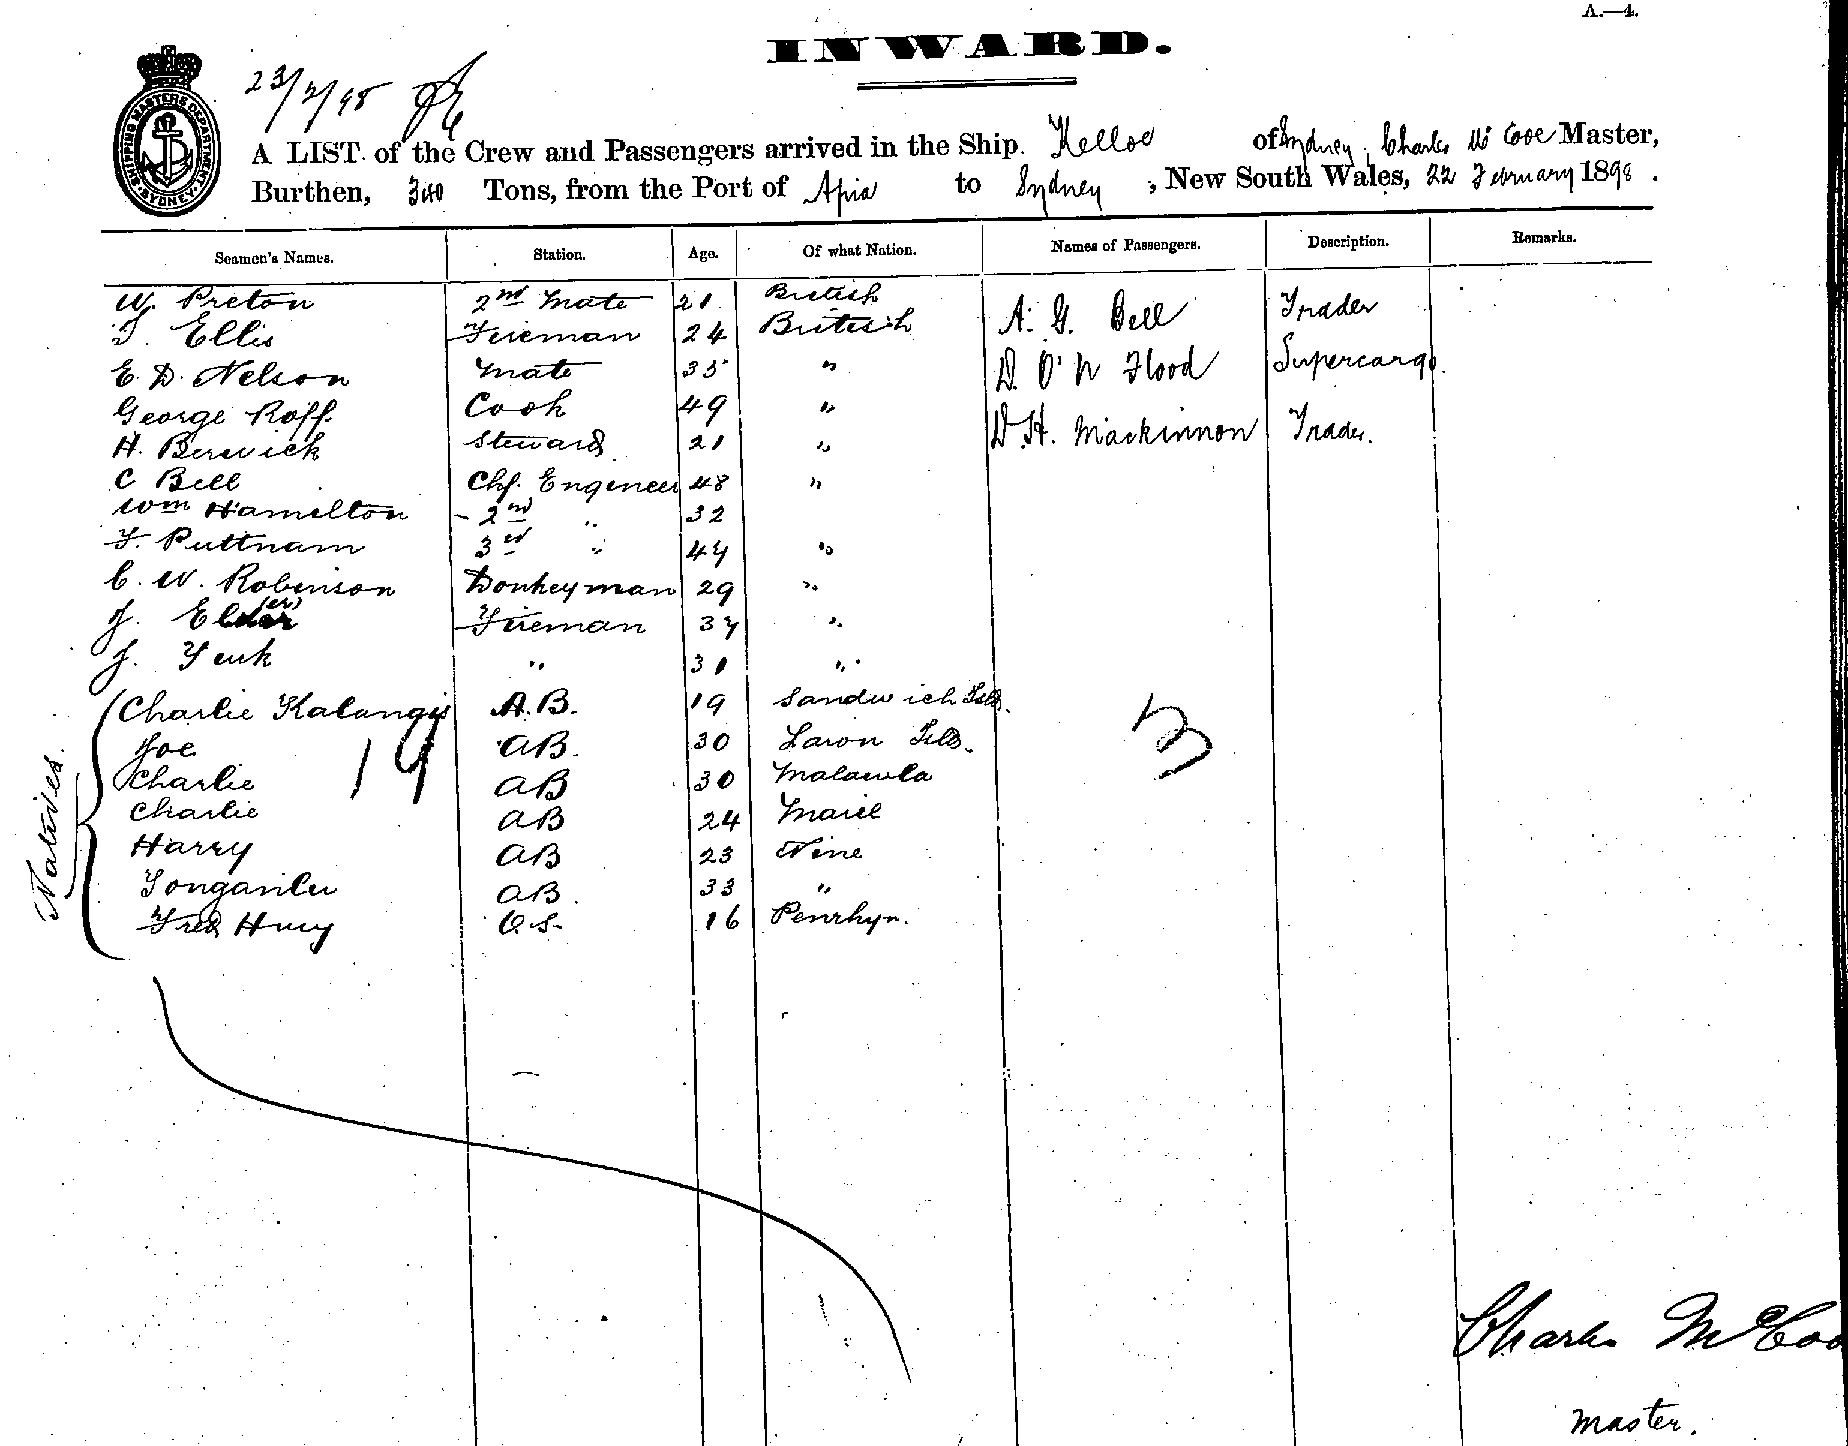 A.—4.
INWARD.
SHIPPING MASTERS DEPARTMENT SYDNEY
23/2/98
A LIST of the Crew and Passengers arrived in the Ship Kelloe of Sydney, Charles Mc Cooe Master,
Burthen, 340 Tons, from the Port of Apia to Sydney, New South Wales, 22 February 1898.
Seamen's Names. Station. Age. Of what Nation. Names of Passengers. Description. Remarks.
W. Preton 2nd Mate 21 British A. G. Bell Trader
T. Ellis Fireman 24 British
E. D. Nelson Mate 35 " D. O'N Flood Supercargo.
George Roff. Cook 49 "
H. Berwick Steward 21 " D. H. Mackinnon Trader.
C Bell Chf. Engineer 48 "
Wm Hamilton - 2nd " 32
F. Puttnam 3rd " 47 "
C. W. Robinson Donkeyman 29 "
J. Elder (er) Fireman 37 "
J. " 31 "
Natives.
Charlie Kalangis A.B. 19 Sandwich Isls.
Joe AB. 30 Isls.
19
3
Charlie AB 30
Charlie AB 24
Harry AB 23 Nine
AB. 33 "
Fred O.S. 16 Penrhyn.
Charles McCoo
Master.